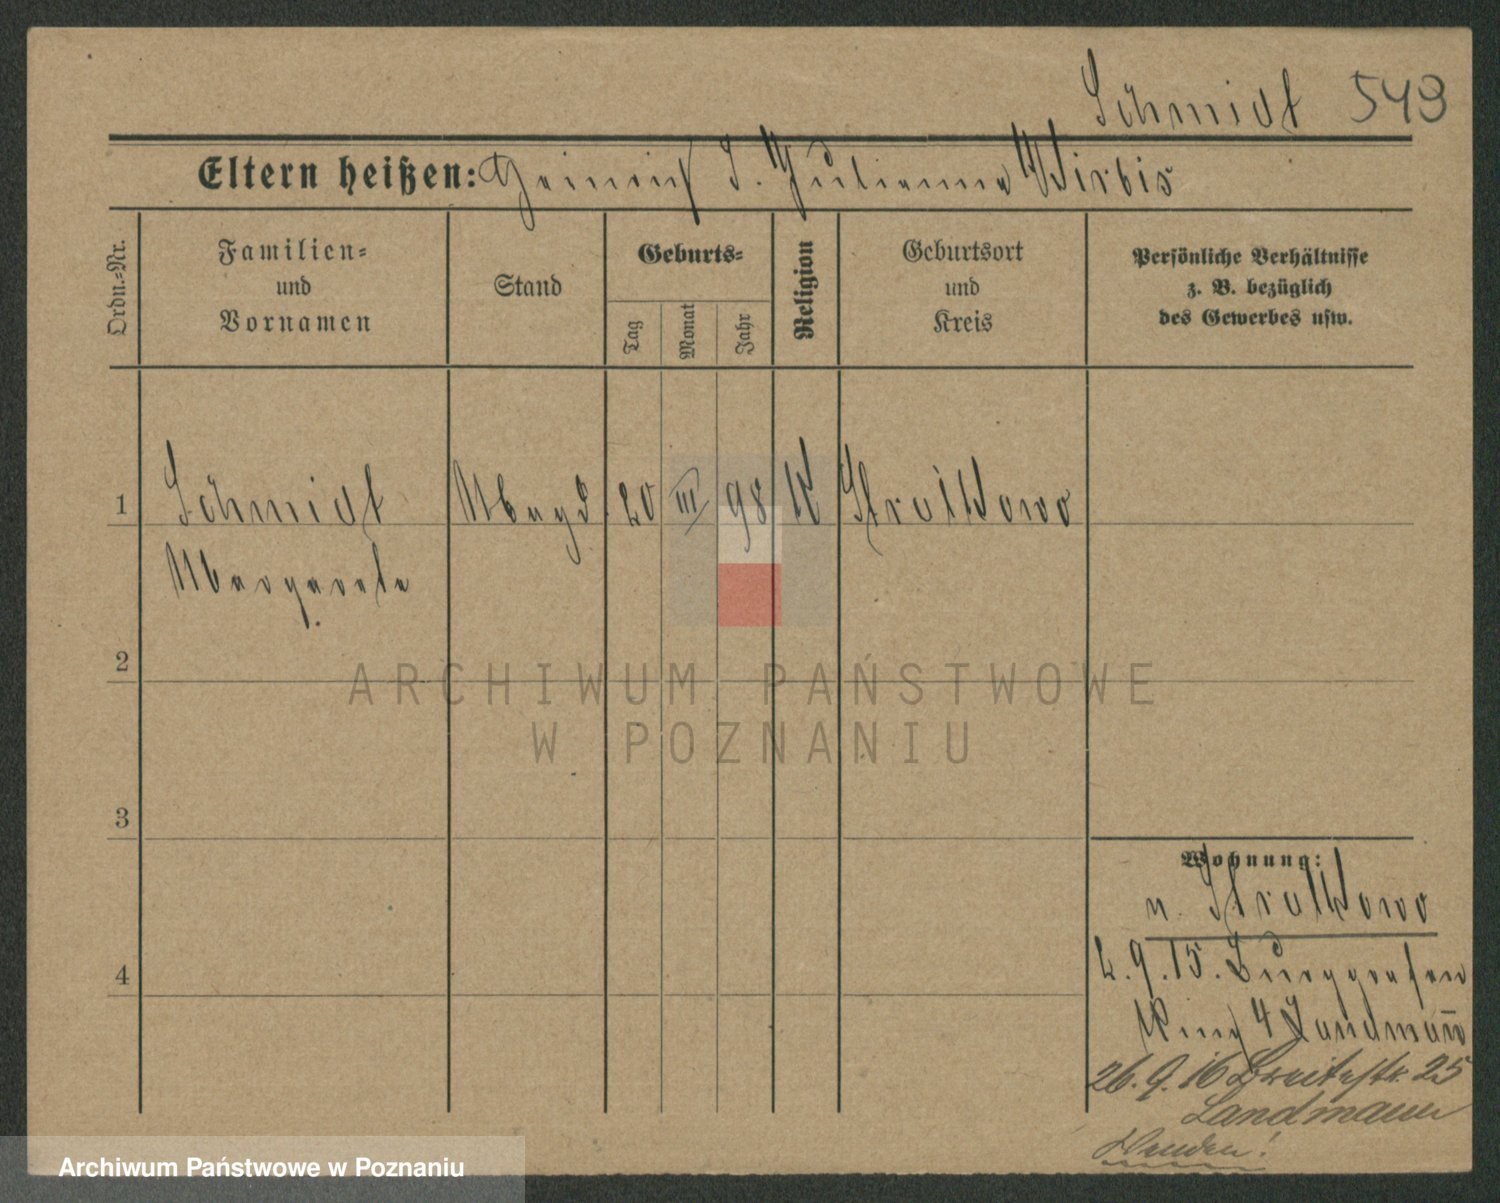 Schmidt 549
Eltern heißen: Heinrich I. Julianna Wirbis
Ordn.=Nr.
Familien=
und
Vornamen
Stand
Geburts=
Tag
Monat
Jahr
Religion
Geburtsort
und
Kreis
Persönliche Verhältnisse
z. B. bezüglich
des Gewerbes usw.
1 Schmidt Magd 20 III 98 K Stralkowo
Margarete
2
3
4
Wohnung:
n. Stralkowo
2.9.15. Burggrafen
Ring 4 Landmann
26.9.16 Breitestr. 25
Landmann
Wenden!
ARCHIWUM PAŃSTWOWE
W POZNANIU
Archiwum Państwowe w Poznaniu